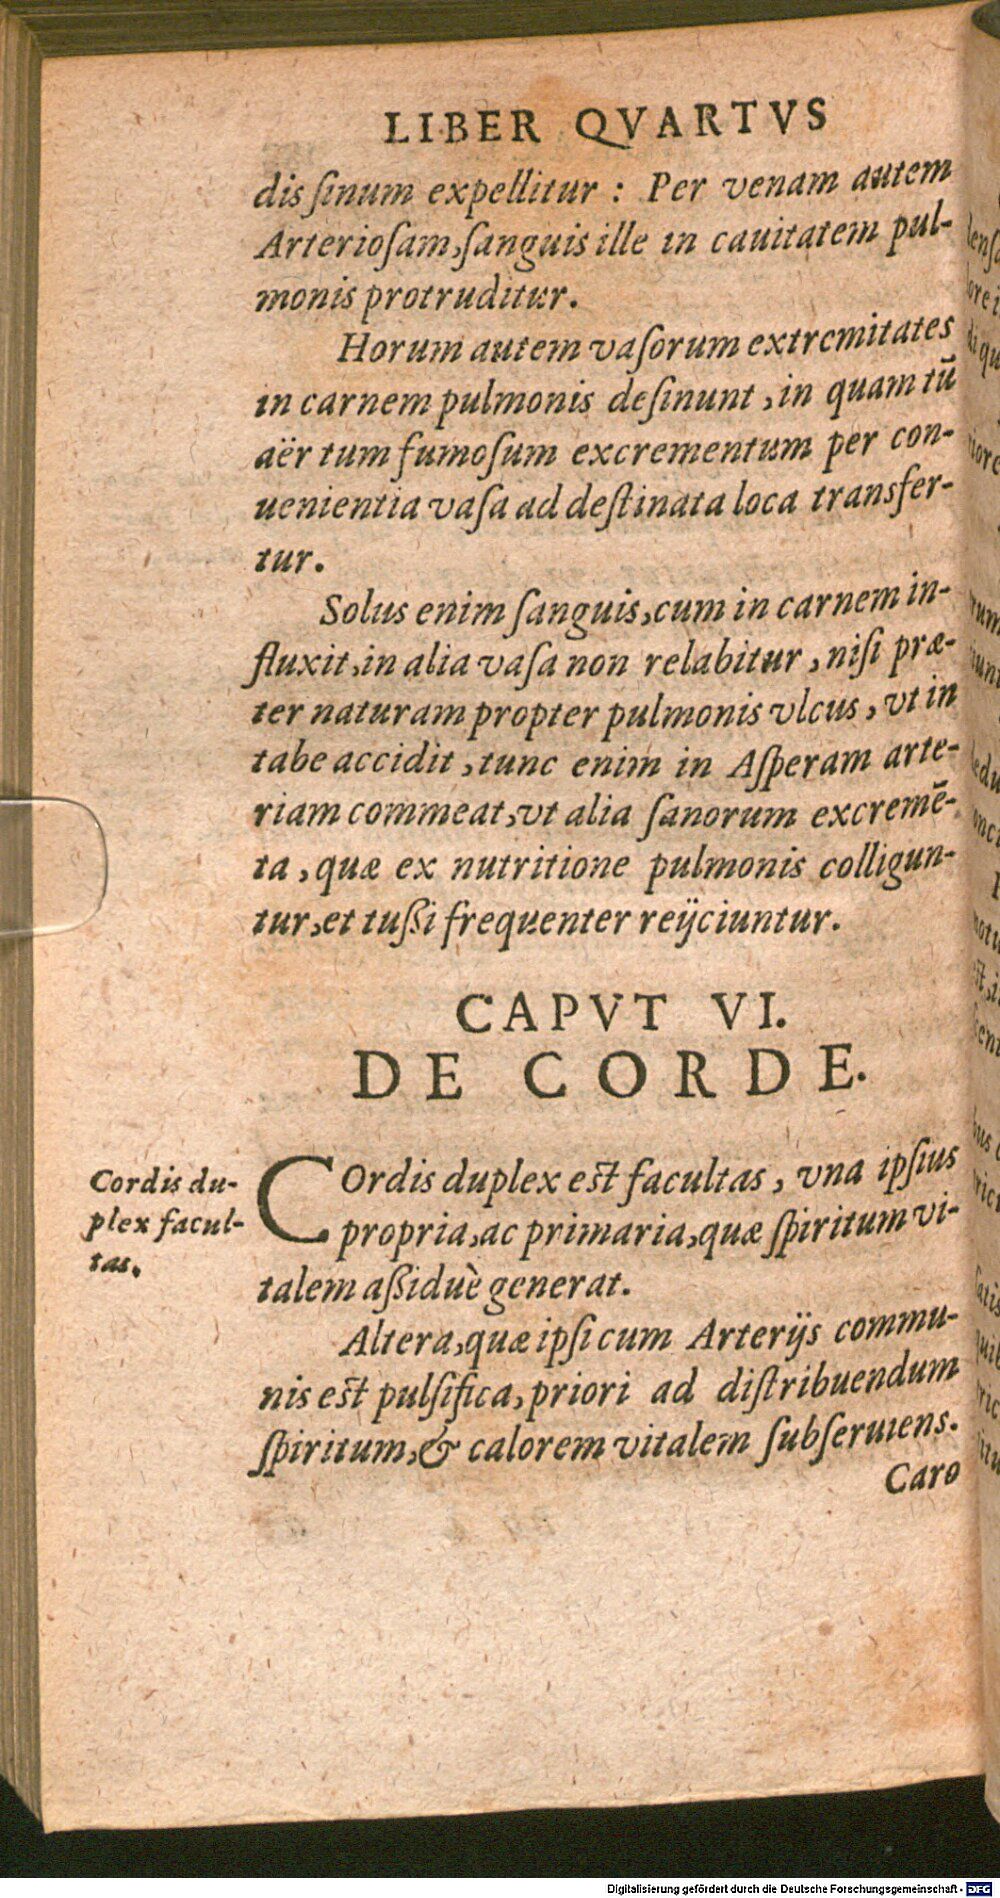 LIBER QVARTVS
dis ſinum expellitur : Per venam autem
Arterioſam,ſanguis ille in cauitatem pul-
monis protruditur.
Horum autem vaſorum extremitates
in carnem pulmonis deſinunt , in quam tū
aër tum fumoſum excrementum per con-
uenientia vaſa ad deſtinata loca transfer-
tur.
Solus enim ſanguis,cum in carnem in-
fluxit,in alia vaſa non relabitur , niſi præ-
ter naturam propter pulmonis vlcus , vt in
tabe accidit , tunc enim in Aſperam arte-
riam commeat,vt alia ſanorum excremē-
ta , quæ ex nutritione pulmonis colligun-
tur,et tußi frequenter reijciuntur.
CAPVT VI.
DE CORDE.
Cordis du-
plex facul-
tas.
COrdis duplex eſt facultas , vna ipſius
propria,ac primaria,quæ ſpiritum vi-
talem aßiduè generat.
Altera,quæ ipſi cum Arterijs commu-
nis eſt pulſifica,priori ad diſtribuendum
ſpiritum,& calorem vitalem ſubſeruiens.
Caro
Digitalisierung gefördert durch die Deutsche Forschungsgemeinschaft - DFG